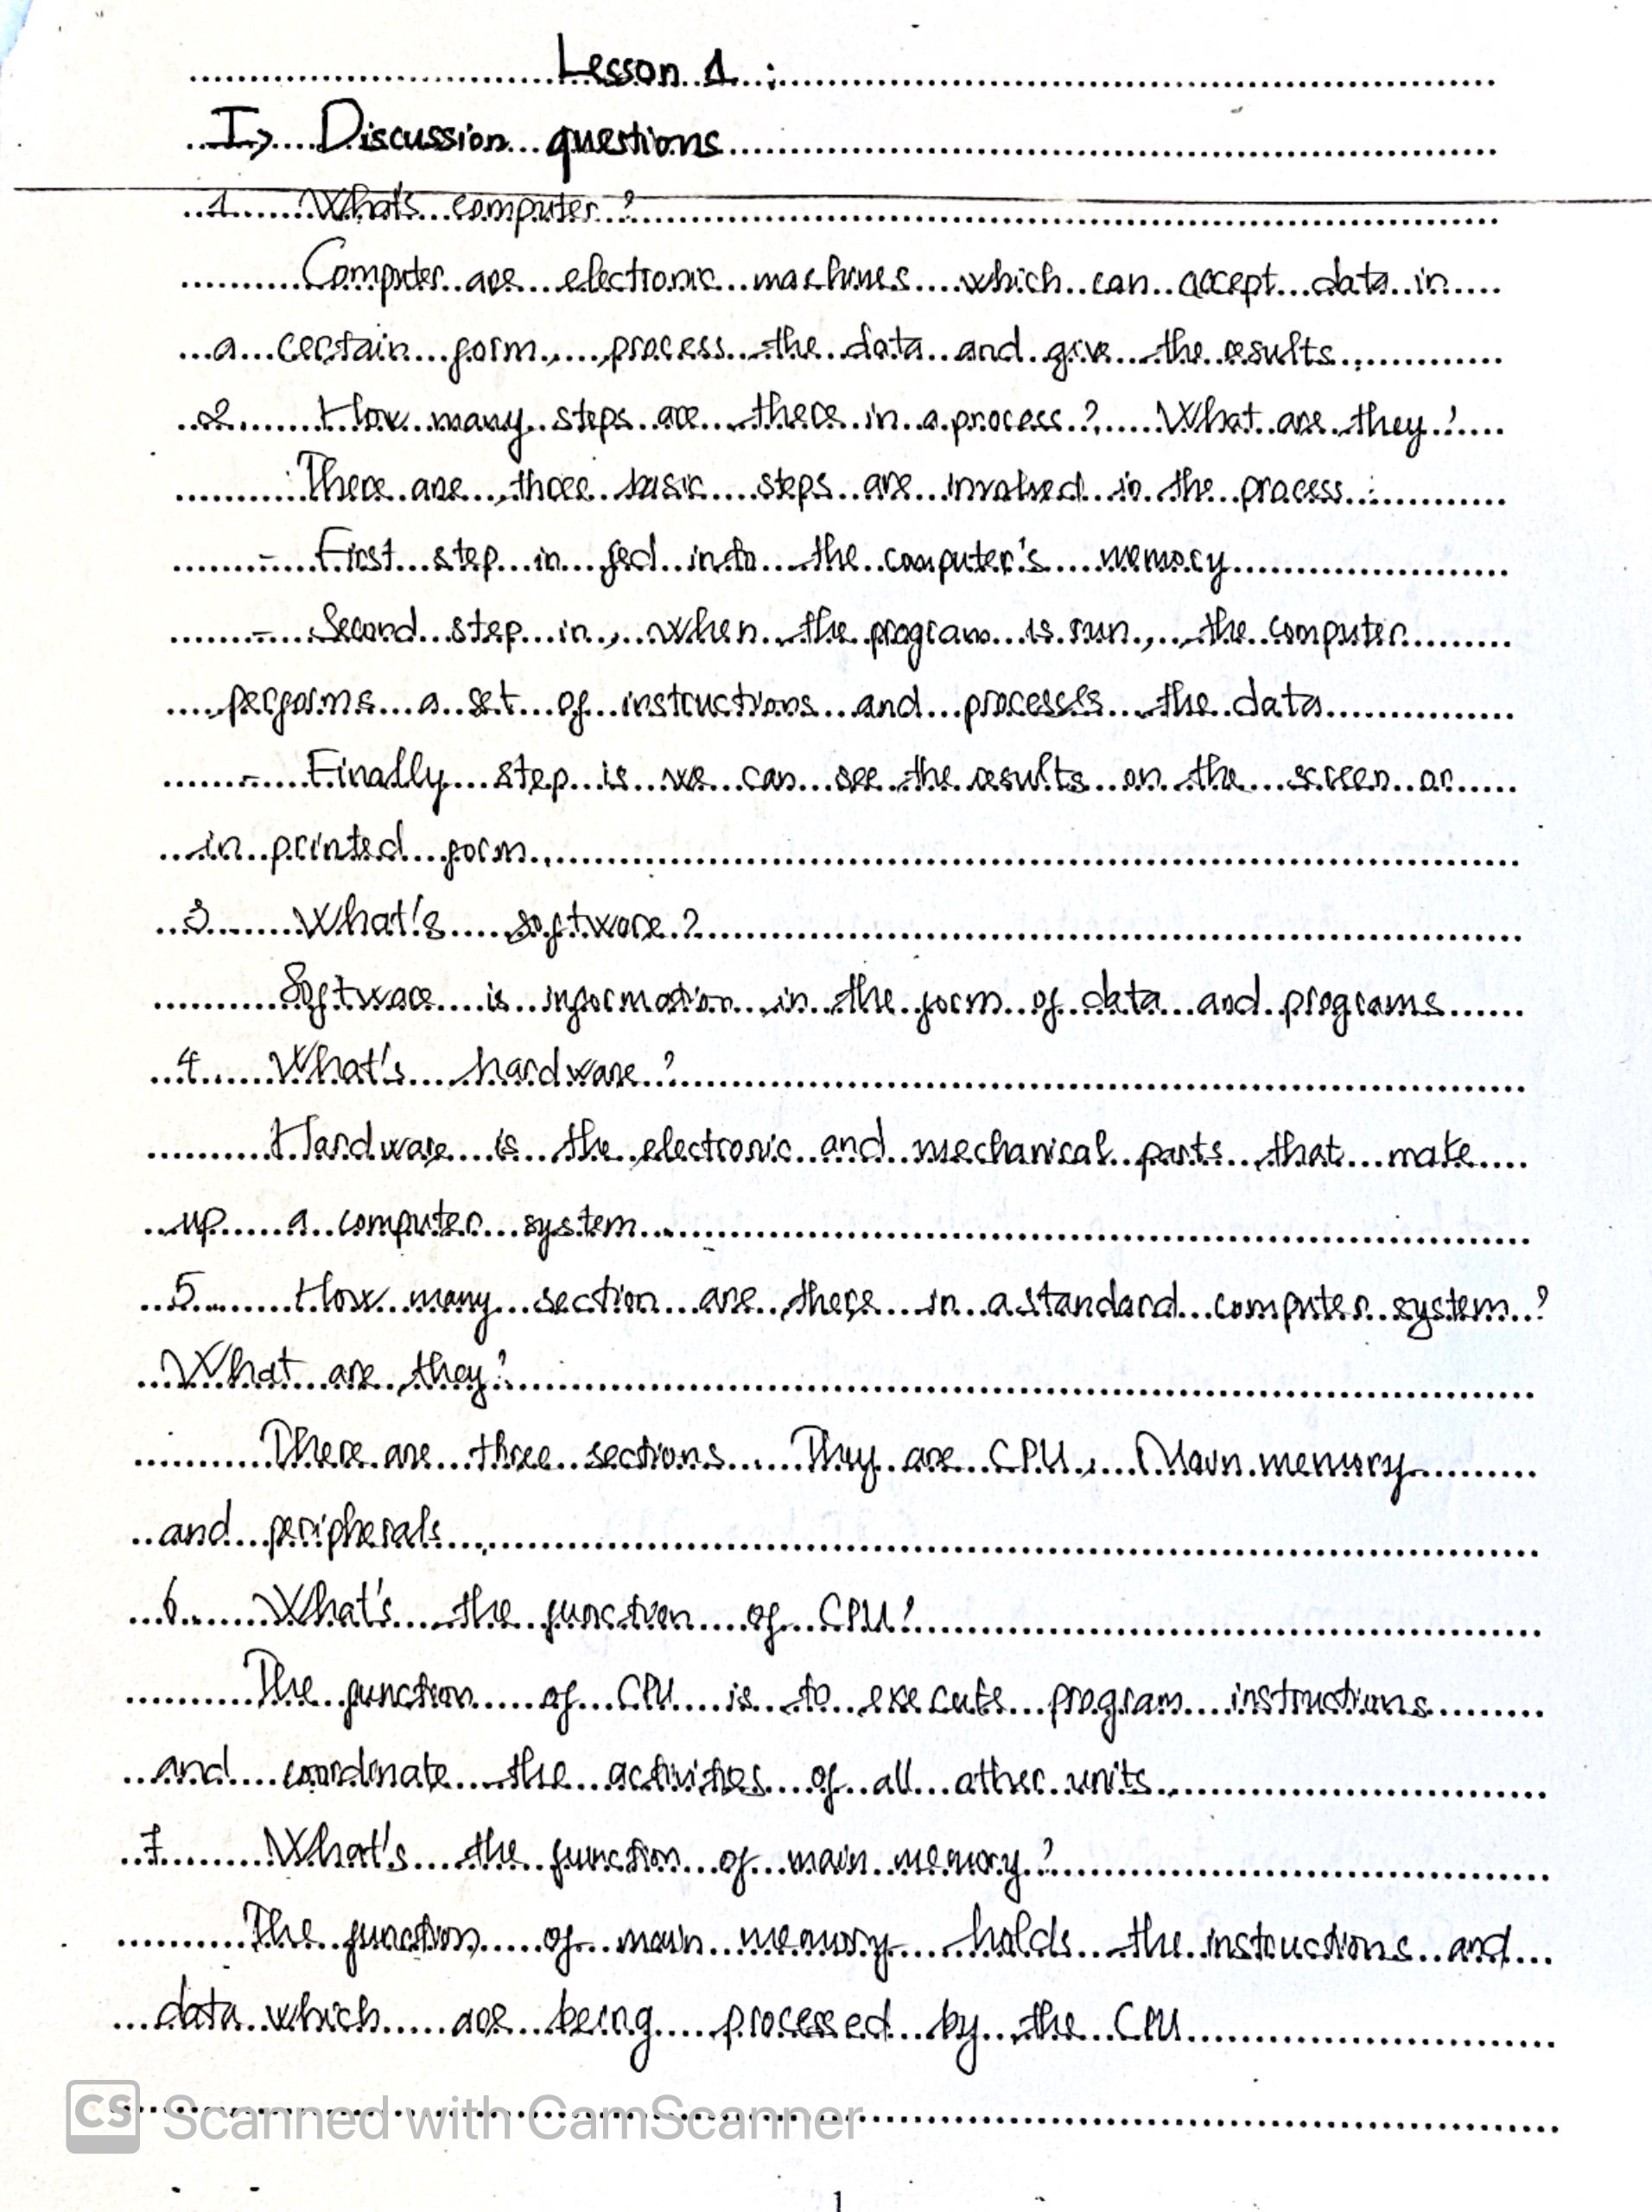 Lesson 1 :
I> Discussion questions
1. What's computer ?
Computer are electronic machines which can accept data in
a certain form, process the data and give the results.
2. How many steps are there in a process ? What are they ?
There are three basic steps are involved in the process :
- First step in fed into the computer's memory
- Second step in, when the program is run, the computer
performs a set of instructions and processes the data
- Finally step is we can see the results on the screen or
in printed form.
3. What's software ?
Software is information in the form of data and programs
4. What's hardware ?
Hardware is the electronic and mechanical parts that make
up a computer system.
5. How many section are there in a standard computer system ?
What are they ?
There are three sections. They are CPU, Main memory
and peripherals.
6. What's the function of CPU ?
The function of CPU is to execute program instructions
and coordinate the activities of all other units.
7. What's the function of main memory ?
The function of main memory holds the instructions and
data which are being processed by the CPU
CS Scanned with CamScanner
1